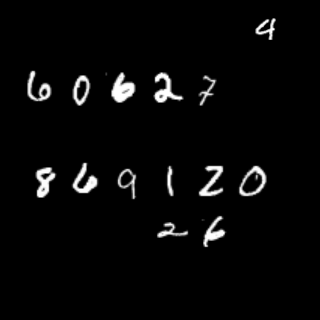 4
60627
869120
26